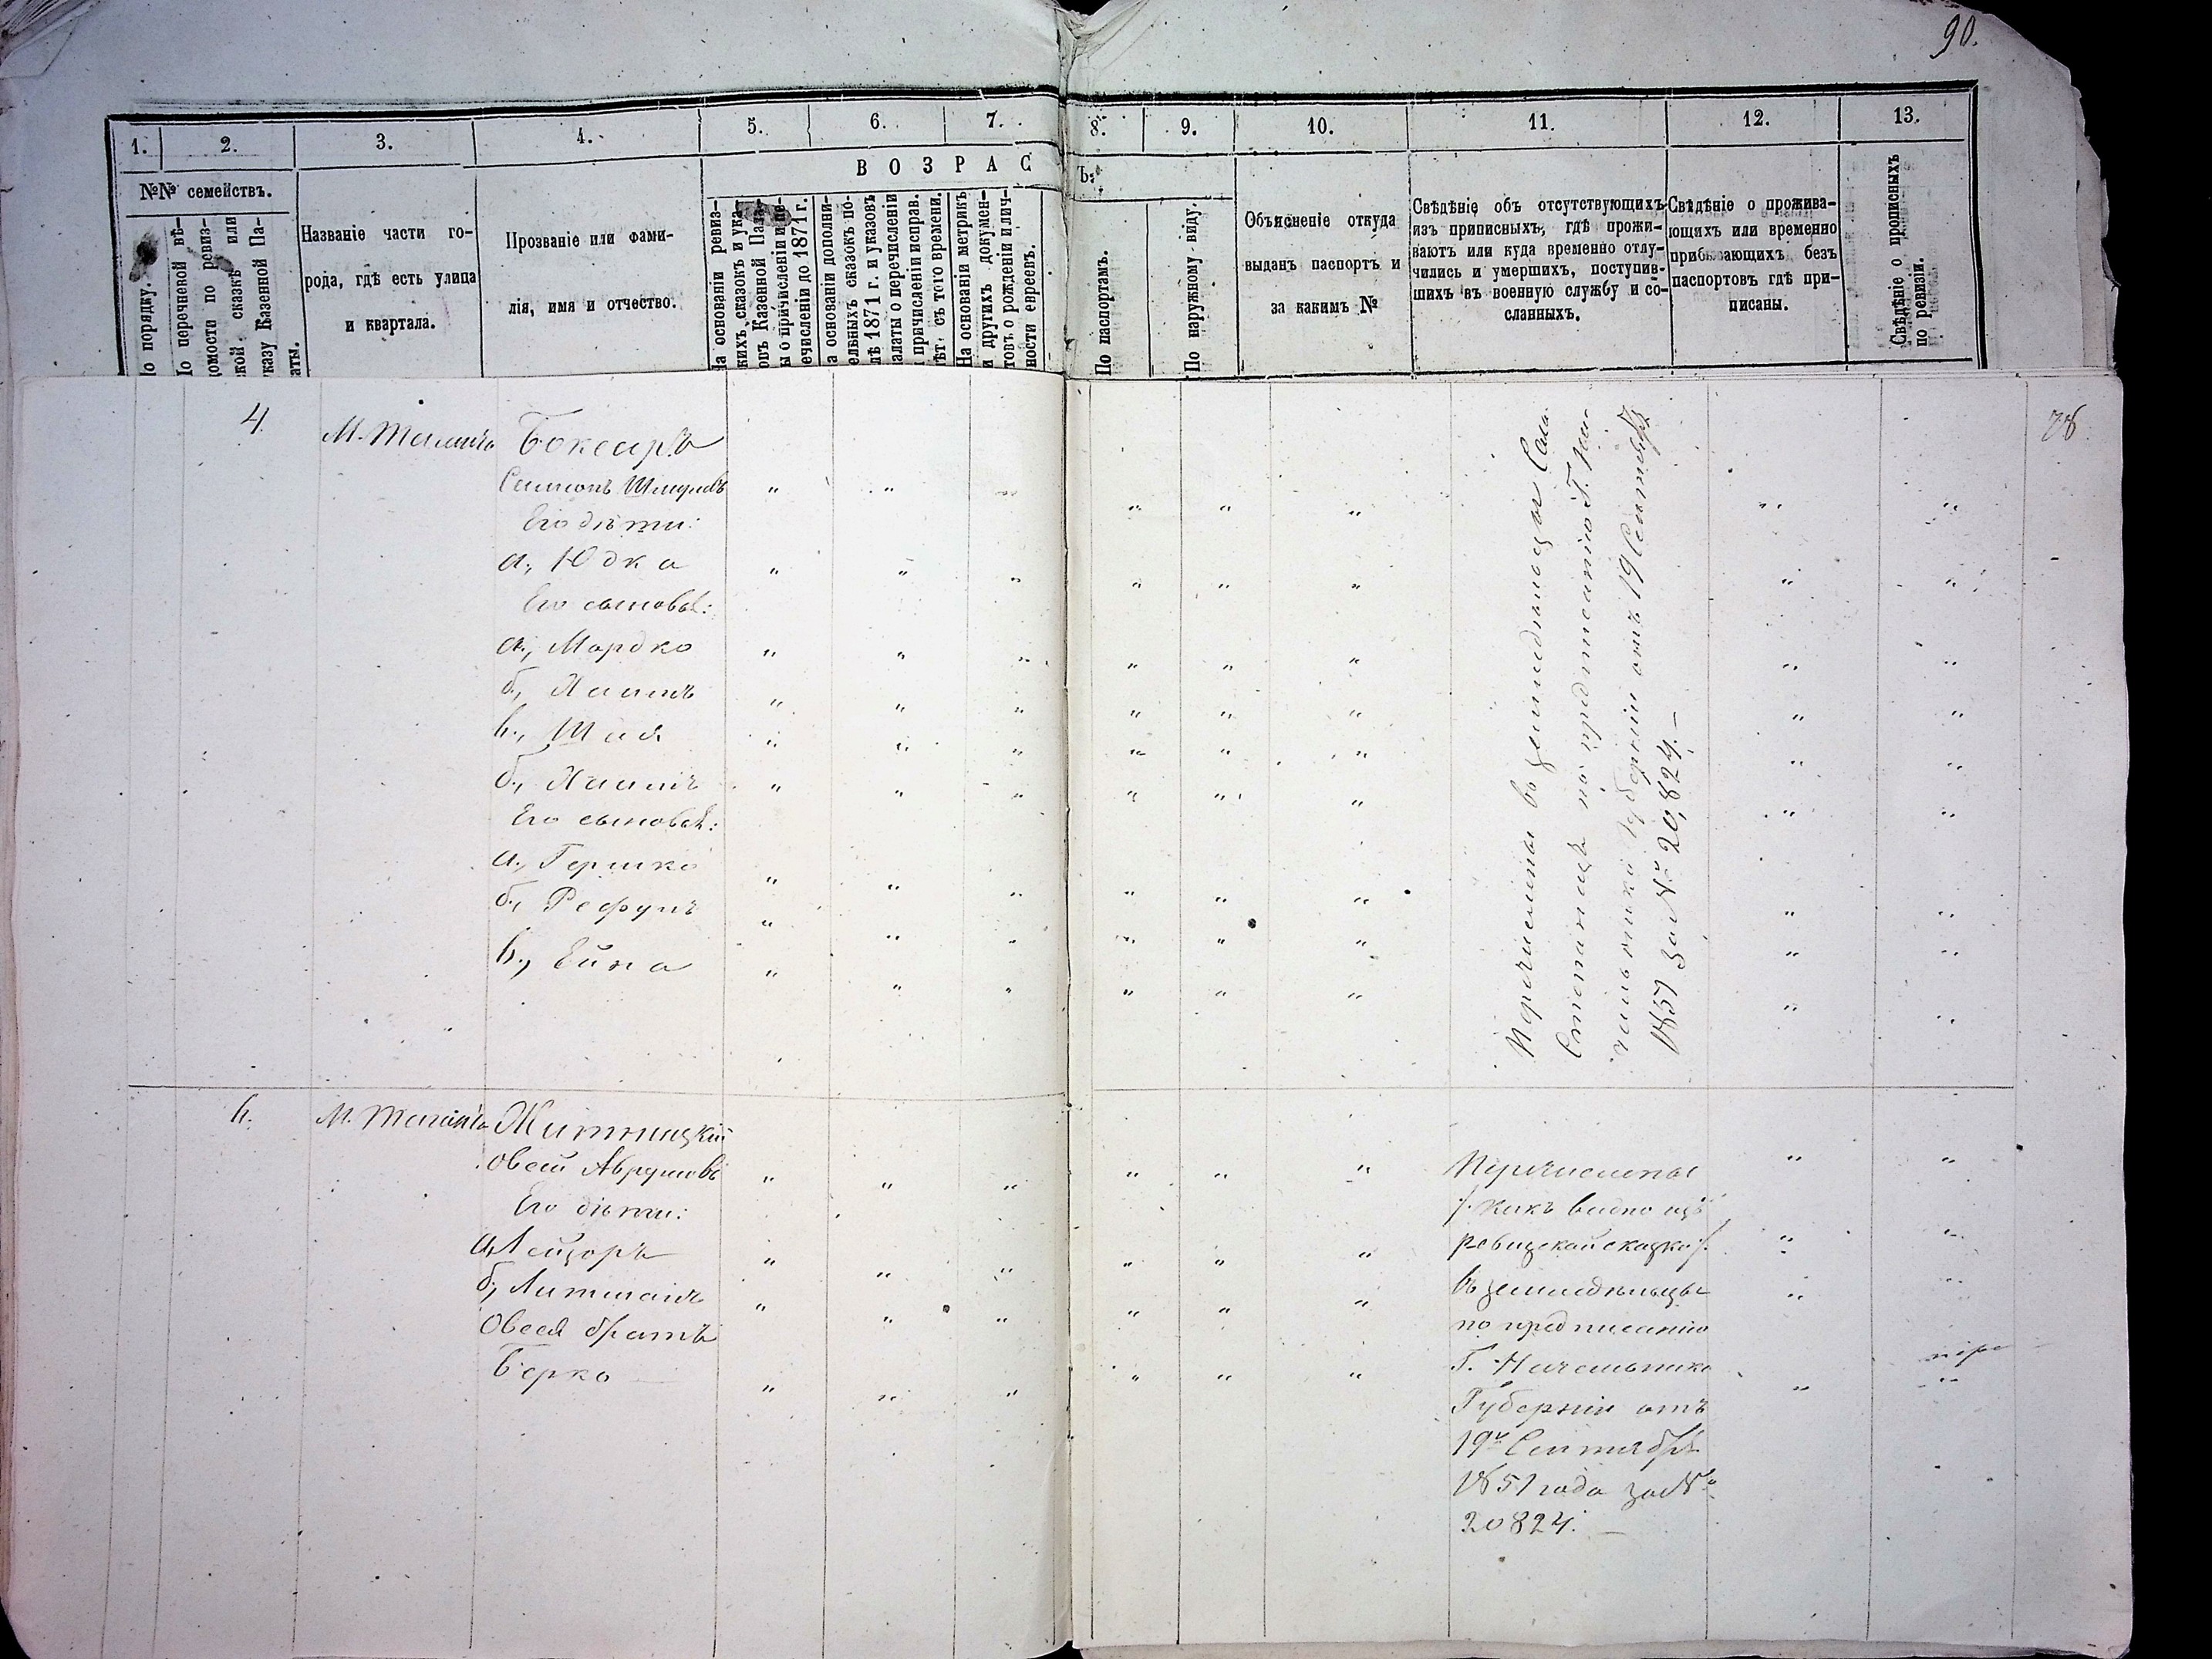 90.
1. 2. 3. 4. 5. 6. 7. 8. 9. 10. 11. 12. 13.
В О З Р А С Ъ.
№№ семействъ.
По порядку.
По перечневой вѣ-
домости по ревиз-
ской сказкѣ или
указу Казенной Па-
латы.
Названіе части го-
рода, гдѣ есть улица
и квартала.
Прозваніе или фами-
лія, имя и отчество.
На основаніи ревиз-
скихъ сказокъ и ука-
зовъ Казенной Пала-
ты о причисленіи и пе-
речисленіи до 1871 г.
На основаніи дополни-
тельныхъ сказокъ по-
слѣ 1871 г. и указовъ
Палаты о перечисленіи
и причисленіи исправ.
лѣт. съ того времени.
На основаніи метрикъ
и другихъ докумен-
товъ о рожденіи и лич-
ности евреевъ.
По паспортамъ.
По наружному виду.
Объясненіе откуда
выданъ паспортъ и
за какимъ №
Свѣдѣніе объ отсутствующихъ
изъ приписныхъ, гдѣ прожи-
ваютъ или куда временно отлу-
чились и умершихъ, поступив-
шихъ въ военную службу и со-
сланныхъ.
Свѣдѣніе о прожива-
ющихъ или временно
прибывающихъ безъ
паспортовъ гдѣ при-
писаны.
Свѣдѣніе о прописныхъ
по ревизіи.
4.
Боксаръ
Его дѣти:
а., Юдка
Его сыновья:
а., Мордко
б., Хаимъ
в., Шая
б., Хаимъ
Его сыновья:
а., Гершко
б., Рефулъ
в., Ейна
Перечислены въ земледѣльцы
по предписанію Г. На-
чальника Губерніи отъ 19 Сентября
1851 за № 20,824.—
Житницкій
Овсей Аврумовъ
Его дѣти:
а, Лейзоръ
б, Литманъ
Овсея братъ
Берко
Перечислены
/. какъ видно изъ
ревизской сказки /.
въ земледѣльцы
по предписанію
Г. Начальника
Губерніи отъ
19го Сентября
1851 года за №
20824.—